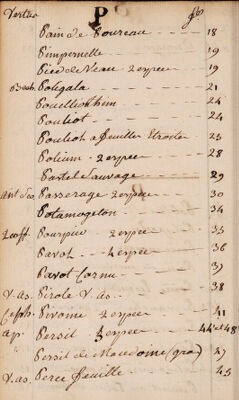 Vertus P fo
Pain de Pourceau - - 18
Pimpernelle - - - 19
Pied de Veau 2 espece - - 19
Poligala - - - 21
- - - 24
Pouliot - - - 24
Pouliot a feuilles Etroites - - 25
Polium - 2 espece - - 28
Pastel Sauvage - - - 29
Passerage 2 espece - - 30
Potamogeton - - - 34
Pourpier 2 espece - - 35
Pavot - - 4 espece - - 36
Pavot Cornu - - - 37
V. as. Pirole V. as. - - - 38
Ceph. Pivoine 2 espece - - 41
ap. Persil 3 espece - - 44 et 48
Persil de Macedoine (gra) - - 47
V. as. Perce feuille - - - 45